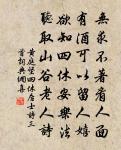 無求不著看人面
有酒可以留人嬉
欲知四休安樂法
聽取山谷老人詩
黃庭堅四休居士詩三
首詞典